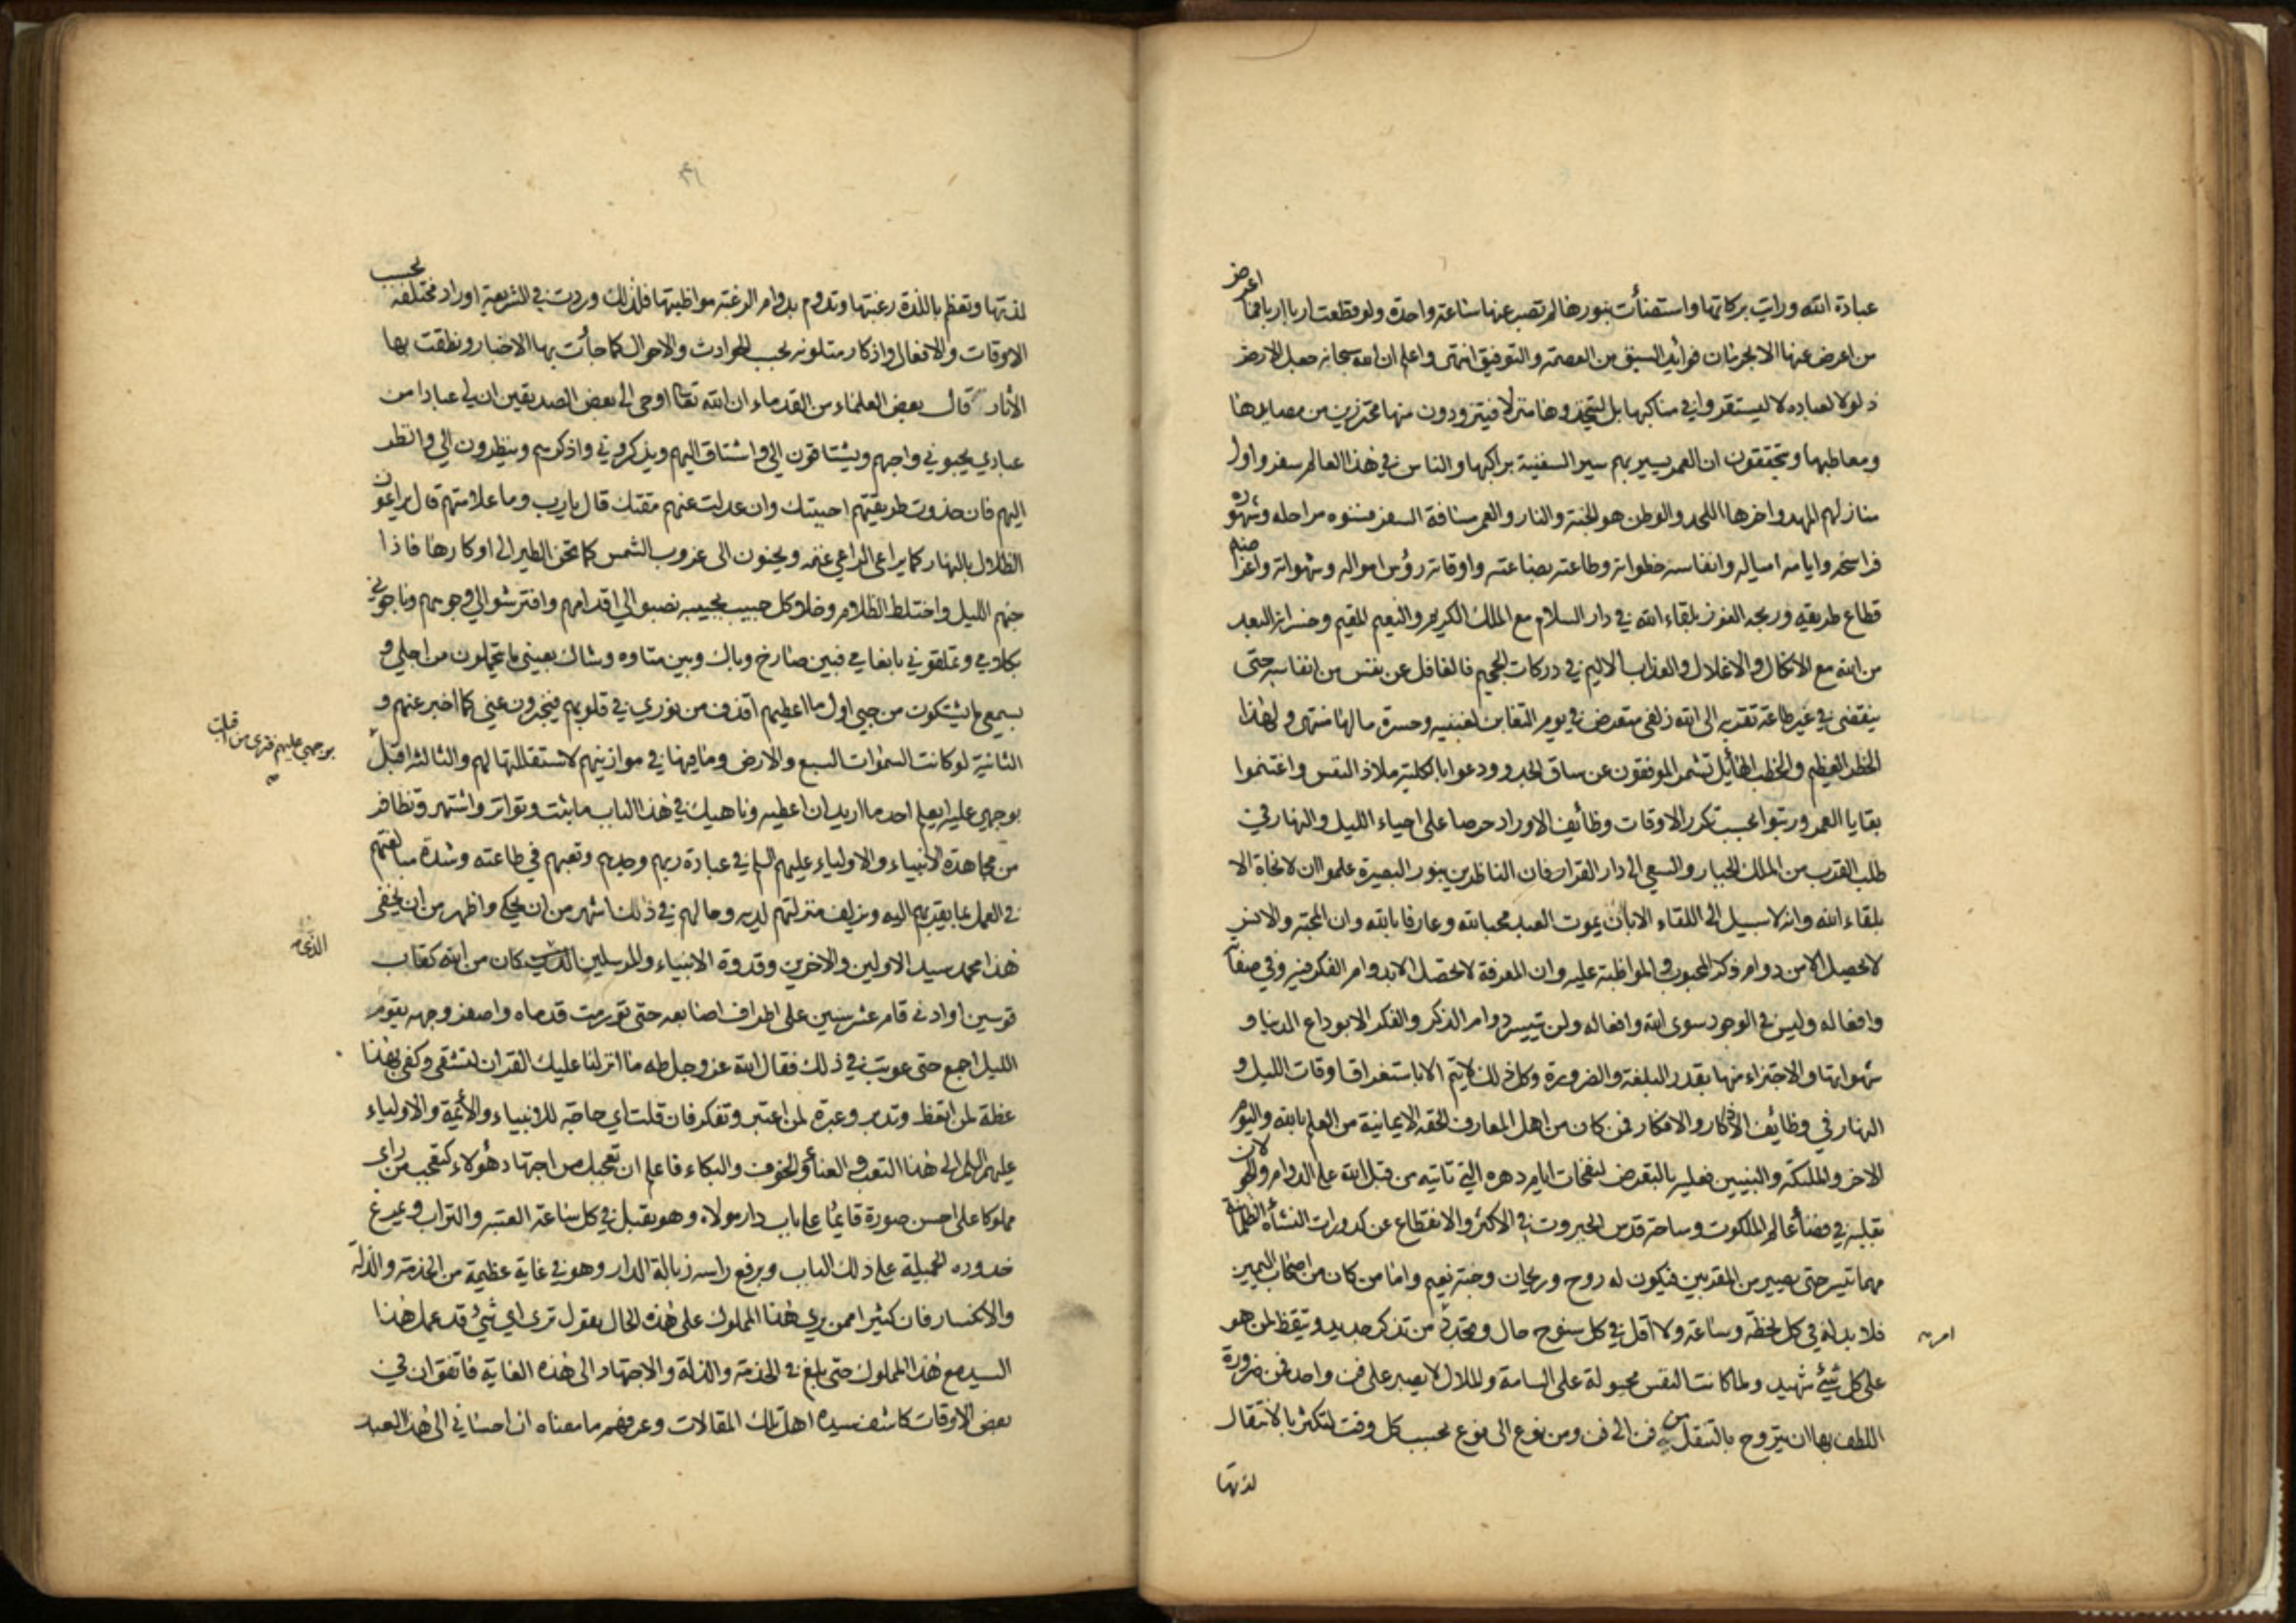 عبادة الله ورات بركاتها واستضأت بنورها لم تصبر عنها ساعة واحدة ولو قطعت اربا اربا فما اعرض
من اعرض عنها الا لحرمان فوائد السبق من العصمة والتوفيق انتهى واعلم ان الله سبحانه جعل الارض
ذلولا لعباده لا ليستقروا في مناكبها بل ليتخذوها منزلا فيتزودون منها محترزين من مصايدها
ومعاطبها ويتحققون ان العمر يسير بهم سير السفينة براكبها والناس في هذا العالم سفر واول
منازلهم المهد واخرها اللحد والوطن هو الجنة والنار والعمر مسافة السفر فسنوه مراحله وشهوره
فراسخه وايامه امياله وانفاسه خطواته وطاعته بضاعته واوقاته رؤس امواله وشهواته واغراضه
قطاع طريقه وربحه الفوز بلقاء الله في دار السلام مع الملك الكريم والنعيم المقيم وخسرانه البعد
من الله مع الانكال والاغلال والعذاب الاليم في دركات الجحيم فالغافل عن نفس من انفاسه حتى
ينقضى في غير طاعة تقربه الى الله زلفى متعرض في يوم التغابن لغبينة وحسرة ما لها منتهى ولهذا
الخطر العظيم والخطب الهائل تشمر الموفقون عن ساق الجد وودعوا بالكلية ملاذ النفس واغتنموا
بقايا العمر ورتبوا بحسب تكرر الاوقات وظائف الاوراد حرصا على احياء الليل والنهار في
طلب القرب من الملك الجبار والسعي الى دار القرار فان الناظرين بنور البصيرة علموا ان لا نجاة الا
بلقاء الله وانه لا سبيل الى اللقاء الا بان يموت العبد محبا لله وعارفا بالله وان المحبة والانس
لا تحصل الا من دوام ذكر المحبوب والمواظبة عليه وان المعرفة لا تحصل الا بدوام الفكر فيه وفي صفاته
وافعاله وليس في الوجود سوى الله وافعاله ولن يتيسر دوام الذكر والفكر الا بوداع الدنيا و
شهواتها والاجتزاء منها بقدر البلغة والضرورة وكل ذلك لا يتم الا باستغراق اوقات الليل و
النهار في وظائف الاذكار والافكار فمن كان من اهل المعارف الحقه الايمانية من العلم بالله واليوم
الاخر والملئكة والنبيين فعليه بالتعرض لنفحات ايام دهره التي تاتيه من قبل الله على الدوام والجولان
بقلبه في فضأ عالم الملكوت وساحة قدس الجبروت في الاكثر والانقطاع عن كدورات النشأة الظلمانية
مهما تيسر حتى يصير من المقربين فيكون له روح وريحان وجنة نعيم واما من كان من اصحاب اليمين
فلا بد له في كل لحظة وساعة ولا اقل في كل سنوح حال وتجدد من تذكر جديد وتيقظ لمن هو
امر
على كل شئ شهيد ولما كانت النفس مجبولة على السامة والملال لا يصبر على فن واحد فمن ضرورة
اللطف بها ان يتروح بالتنقل من فن الى فن ومن نوع الى نوع بحسب كل وقت لتكثر بالانتقال
لذتها
٤١
لذتها وتعظم باللذة رغبتها وتدوم بدوام الرغبة مواظبتها فلذلك وردت في الشريعة اوراد مختلفة بحسب
الاوقات والافعال واذكار متلونه بحسب الحوادث والاحوال كما جأت بها الاخبار ونطقت بها
الآثار قال بعض العلماء من القدماء ان الله تعالى اوحى الى بعض الصديقين ان لي عبادا من
عبادي يحبوني واحبهم ويشتاقون الي واشتاق اليهم ويذكروني واذكرهم وينظرون الي وانظر
اليهم فان حذوت طريقتهم احببتك وان عدلت عنهم مقتك قال يا رب وما علامتهم قال يراعون
الظلال بالنهار كما يراعى الراعي غنمه ويحنون الى غروب الشمس كما تحن الطير الى اوكارها فاذا
جنهم الليل واختلط الظلام وخلا كل حبيب بحبيبه نصبوا الي اقدامهم وافترشوا الي وجوههم وناجوني
بكلامي وتملقوني بانعامي فبين صارخ وباك وبين متاوه وشاك بعيني ما يتحملون من اجلي و
بسمعي ما يشتكون من حبي اول ما اعطيهم اقذف من نوري في قلوبهم فيخبرون عني كما اخبر عنهم و
الثانية لو كانت السموات السبع والارض وما فيها في موازينهم لاستقللتها لهم والثالثة اقبل
بوجهي عليهم فترى من اقبلت
بوجهي عليه ايعلم احد ما اريد ان اعطيه وناهيك في هذا الباب ما ثبت وتواتر واشتهر وتظافر
من مجاهدة الانبياء والاولياء عليهم السلم في عبادة ربهم وجدهم وتعبهم في طاعته وشدة مبالغتهم
في العمل بما يقربهم اليه ويزلف منزلتهم لديه وحالهم في ذلك اشهر من ان يحكى واظهر من ان يخفى
هذا محمد سيد الاولين والاخرين وقدوة الانبياء والمرسلين كان من الله كقاب
الذى
قوسين او ادنى قام عشر سنين على اطراف اصابعه حتى تورمت قدماه واصفر وجهه يقوم
الليل اجمع حتى عوتب في ذلك فقال الله عز وجل طه ما انزلنا عليك القران لتشقى وكفى بهذا
عظة لمن اتعظ وتدبر وعبرة لمن اعتبر وتفكر فان قلت اي حاجة للانبياء والأئمة والاولياء
عليهم السلم الى هذا التعب والعنأ والخوف والبكاء فاعلم ان تعجبك من اجتهاد هؤلاء كتعجب من راى
مملوكا على احسن صورة قائما على باب دار مولاه وهو يقبل في كل ساعة العتبة والتراب ويمرغ
خدوده الجميلة على ذلك الباب ويرفع راسه زبالة الدار وهو في غاية عظيمة من الخدمة والذلة
والانكسار فان كثيرا ممن يري هذا المملوك على هذه الحال يقول ترى اي شئ قد عمل هذا
السيد مع هذا المملوك حتى بلغ في الخدمة والذلة والاجتهاد الى هذه الغاية فاتفق ان في
بعض الاوقات كاشف سيده اهل تلك المقالات وعرفهم ما معناه ان احساني الى هذا العبد